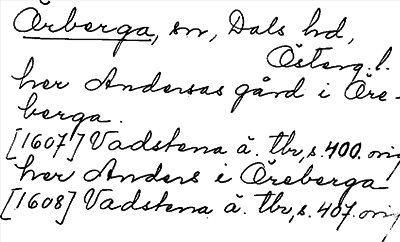 Örberga, sn, Dals hd,
Österg. l.
her Andersas gård i Öre-
berga.
[1607] Vadstena ä. Tbr, s. 400. orig
her Anders i Öreberga
[1608] Vadstena ä. Tbr, s. 407. orig